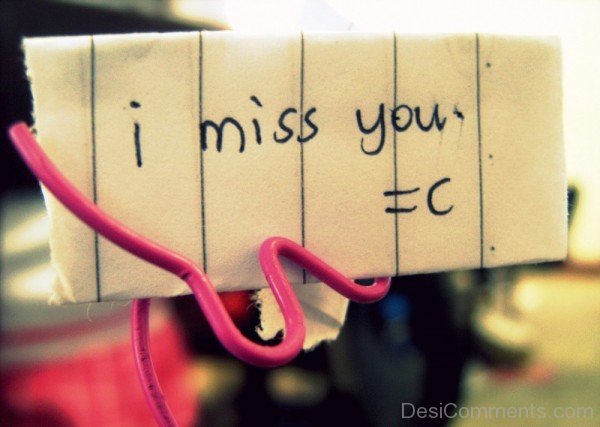 i miss you.
=C
DesiComments.com